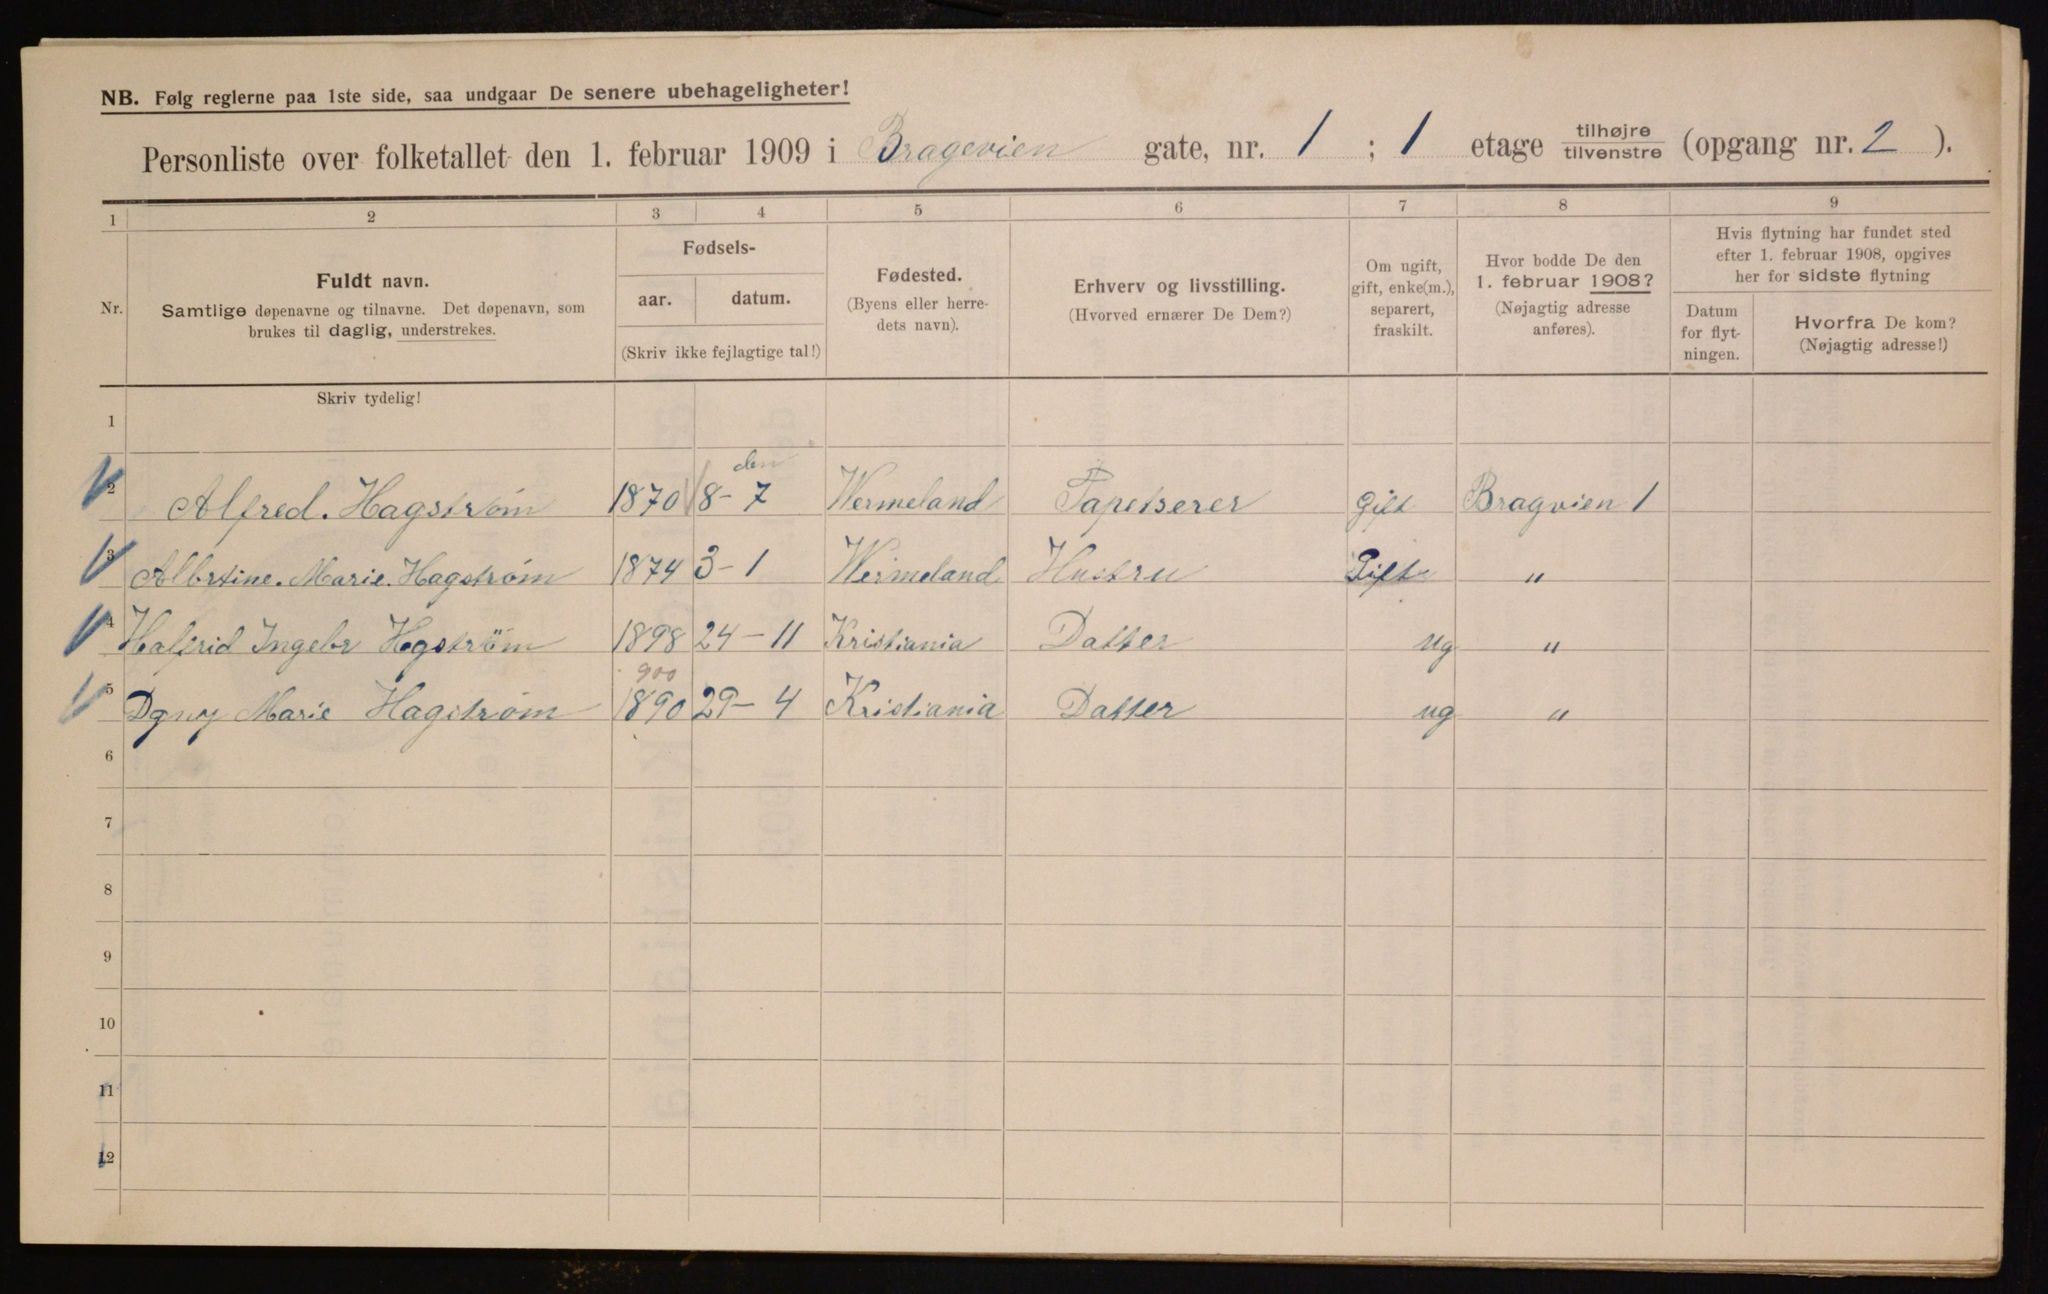 NB. Følg reglerne paa 1ste side, saa undgaar De senere ubehageligheter!
Personliste over folketallet den 1. februar 1909 i Bragevien gate, nr. 1 ; 1 etage tilhøjre/tilvenstre (opgang nr. 2 ).
1 2 3 4 5 6 7 8 9
Nr.
Fuldt navn.
Samtlige døpenavne og tilnavne. Det døpenavn, som
brukes til daglig, understrekes.
Fødsels-
aar. datum.
(Skriv ikke fejlagtige tal!)
Fødested.
(Byens eller herre-
dets navn).
Erhverv og livsstilling.
(Hvorved ernærer De Dem?)
Om ugift,
gift, enke(m.),
separert,
fraskilt.
Hvor bodde De den
1. februar 1908?
(Nøjagtig adresse
anføres).
Hvis flytning har fundet sted
efter 1. februar 1908, opgives
her for sidste flytning
Datum
for flyt-
ningen.
Hvorfra De kom?
(Nøjagtig adresse!)
Skriv tydelig!
1
den
2 Alfred. Hagstrøm 1870 8-7 Wermeland Tapetserer Gift Bragvien 1
3 Albrtine. Marie. Hagstrøm 1874 3-1 Wermeland Hustru Gift "
4 Halfrid Ingebr Hgström 1898 24-11 Kristiania Datter ug "
900
5 Dgny Marie Hagstrøm 1890 29-4 Kristiania Datter ug "
6
7
8
9
10
11
12